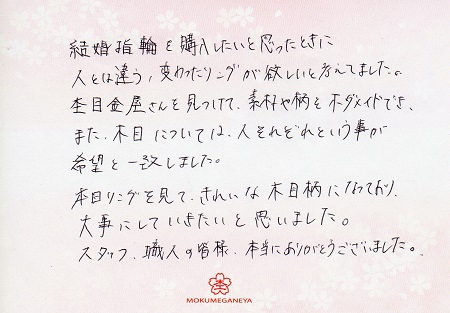 結婚指輪を購入したいと思ったときに
人とは違う、変わったリングが欲しいと考えてました。
杢目金屋さんを見つけて、素材や柄もオーダメイドでき、
また、木目については、人それぞれという事が
希望と一致しました。
本日リングを見て、きれいな木目柄になっており、
大事にしていきたいと思いました。
スタッフ、職人の皆様、本当にありがとうございました。
MOKUMEGANEYA